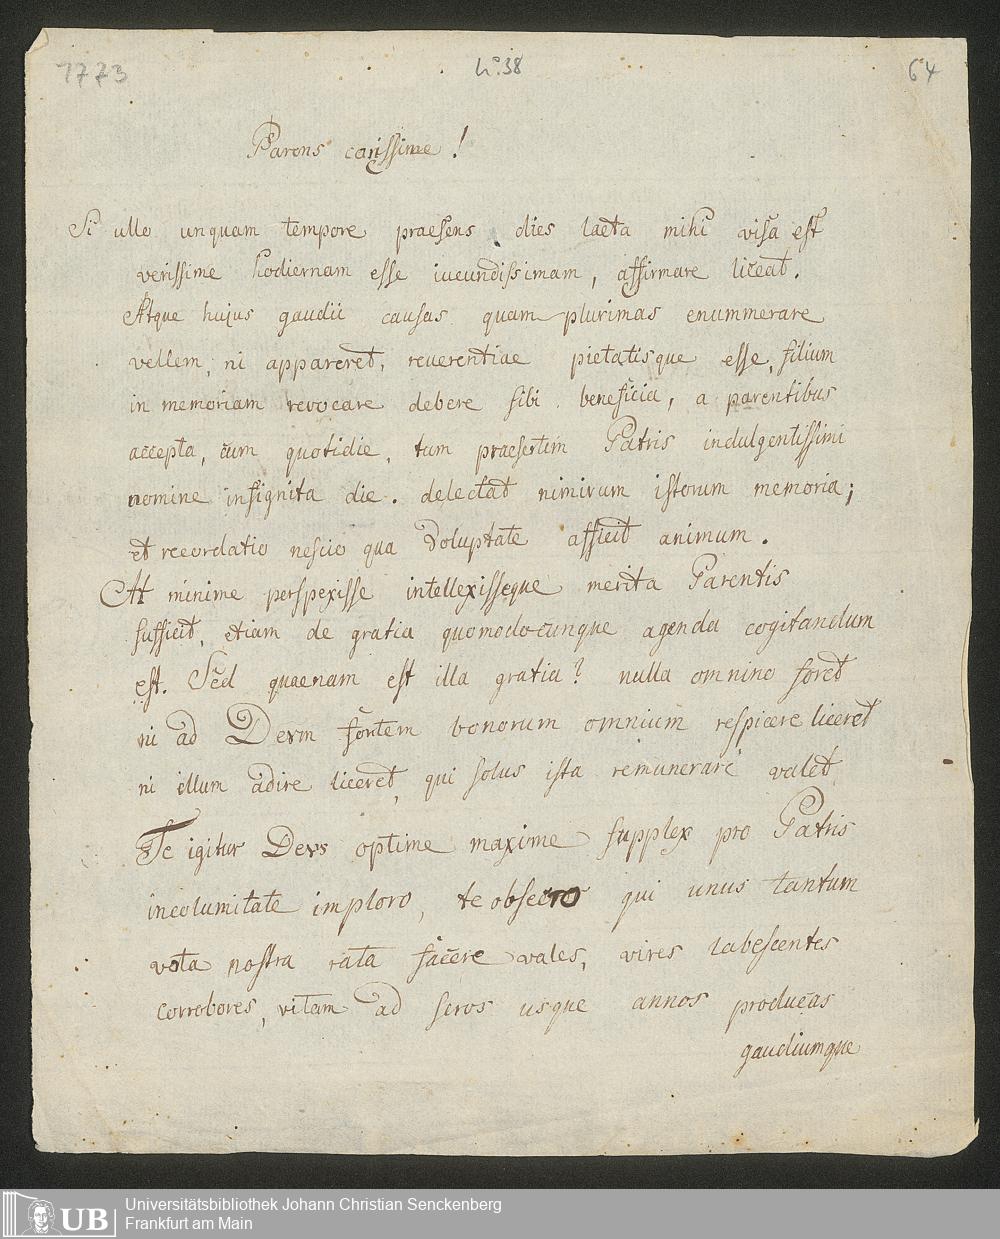 1773
N° 38
64
Parens carissime!
Si ullo unquam tempore praesens dies laeta mihi visa est
verissime hodiernam esse iucundissimam, affirmare liceat.
Atque hujus gaudii causas quam plurimas enummerare
vellem, ni appareret, reuerentiae pietatisque esse, filium
in memoriam revocare debere sibi beneficia, a parentibus
accepta, cum quotidie, tum praesertim Patris indulgentissimi
nomine insignita die. delectat nimirum istorum memoria;
et recordatio nescio qua Voluptate afficit animum.
At minime perspexisse intellexisseque merita Parentis
sufficit, etiam de gratia quomodocunque agenda cogitandum
est. Sed quaenam est illa gratia? nulla omnino foret
ni ad Devm fontem bonorum omnium respicere liceret
ni illum adire liceret, qui solus ista remunerare valet
Te igitur Devs optime maxime supplex pro Patris
incolumitate imploro, te obsecro qui unus tantum
vota nostra rata facere vales, vires labescentes
corrobores, vitam ad seros usque annos producas
gaudiumque
UB
Universitätsbibliothek Johann Christian Senckenberg
Frankfurt am Main